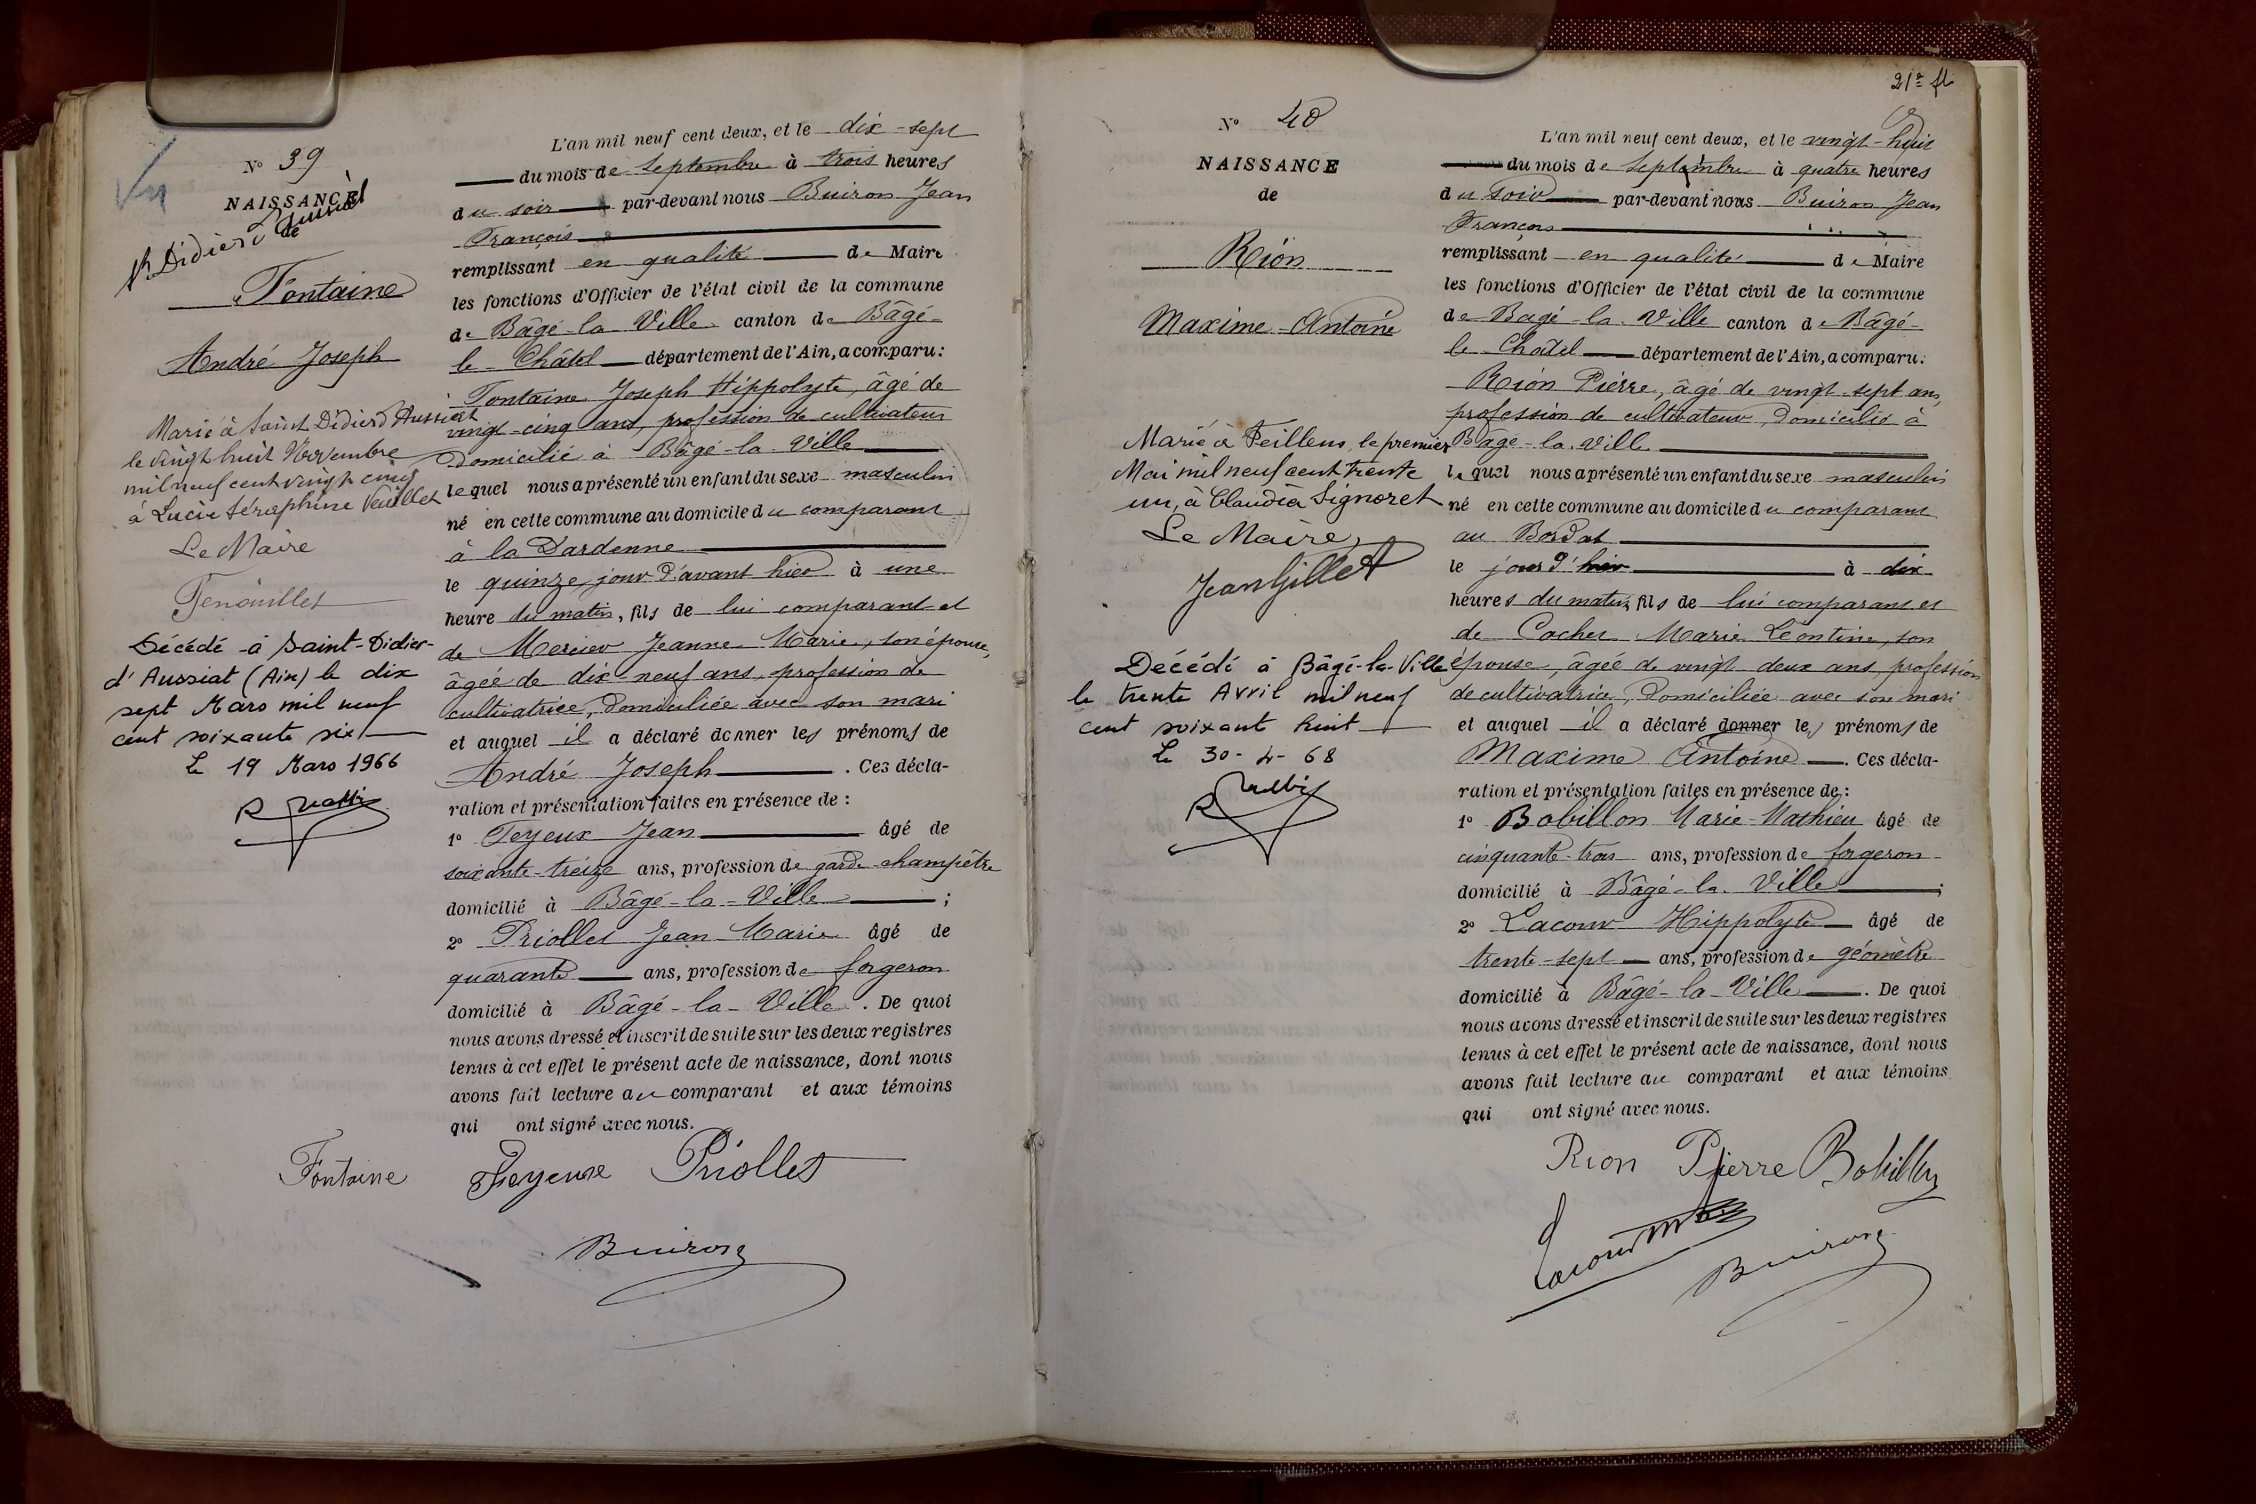 N° 39
NAISSANCE
de
St Didier d'Aussiat
Fontaine
André Joseph
Marié à Saint Didier d'Aussiat
le vingt huit Novembre
mil neuf cent vingt cinq
à Lucie Séraphine Vaillet
Le Maire
Fenouillet
Décédé à Saint-Didier-
d'Aussiat (Ain) le dix
sept Mars mil neuf
cent soixante six
Le 19 Mars 1966
L'an mil neuf cent deux, et le dix-sept
du mois de Septembre à trois heures
du soir par-devant nous Buiron Jean
François
remplissant en qualité de Maire
les fonctions d'Officier de l'état civil de la commune
de Bâgé-la-Ville canton de Bâgé-
le-Châtel département de l'Ain, a comparu :
Fontaine Joseph Hippolyte, âgé de
vingt-cinq ans, profession de cultivateur
domicilié à Bâgé-la-Ville
lequel nous a présenté un enfant du sexe masculin
né en cette commune au domicile du comparant
à la Dardenne
le quinze, jour d'avant hier à une
heure du matin, fils de lui comparant et
de Mercier Jeanne Marie, son épouse,
âgée de dix-neuf ans, profession de
cultivatrice, domiciliée avec son mari
et auquel il a déclaré donner les prénoms de
André Joseph . Ces décla-
ration et présentation faites en présence de :
1° Teyeux Jean âgé de
soixante-treize ans, profession de garde champêtre
domicilié à Bâgé-la-Ville ;
2° Priollet Jean Marie âgé de
quarante ans, profession de forgeron
domicilié à Bâgé-la-Ville . De quoi
nous avons dressé et inscrit de suite sur les deux registres
tenus à cet effet le présent acte de naissance, dont nous
avons fait lecture au comparant et aux témoins
qui ont signé avec nous.
Fontaine Teyeux Priollet
Buiron
21e ft
N° 40
NAISSANCE
de
Rion
Maxime Antoine
Marié à Feillens, le premier
Mai mil neuf cent trente
un, à Claudia Signoret
Le Maire,
Jean Gillet
Décédé à Bâgé-la-Ville
le trente Avril mil neuf
cent soixante huit
Le 30-4-68
L'an mil neuf cent deux, et le vingt-huit
du mois de Septembre à quatre heures
du soir par-devant nous Buiron Jean
François
remplissant en qualité de Maire
les fonctions d'Officier de l'état civil de la commune
de Bâgé-la-Ville canton de Bâgé-
le-Châtel département de l'Ain, a comparu :
Rion Pierre, âgé de vingt-sept ans,
profession de cultivateur, domicilié à
Bâgé-la-Ville
lequel nous a présenté un enfant du sexe masculin
né en cette commune au domicile du comparant
au Bordat
le jour d'hier à dix
heures du matin, fils de lui comparant et
de Cochet Marie Léontine, son
épouse, âgée de vingt deux ans, profession
de cultivatrice, domiciliée avec son mari
et auquel il a déclaré donner les prénoms de
Maxime Antoine . Ces décla-
ration et présentation faites en présence de :
1° Bobillon Marie-Mathieu âgé de
cinquante-trois ans, profession de forgeron
domicilié à Bâgé-la-Ville ;
2° Lacour Hippolyte âgé de
trente-sept ans, profession de géomètre
domicilié à Bâgé-la-Ville . De quoi
nous avons dressé et inscrit de suite sur les deux registres
tenus à cet effet le présent acte de naissance, dont nous
avons fait lecture au comparant et aux témoins
qui ont signé avec nous.
Rion Pierre Bobillon
Lacour
Buiron